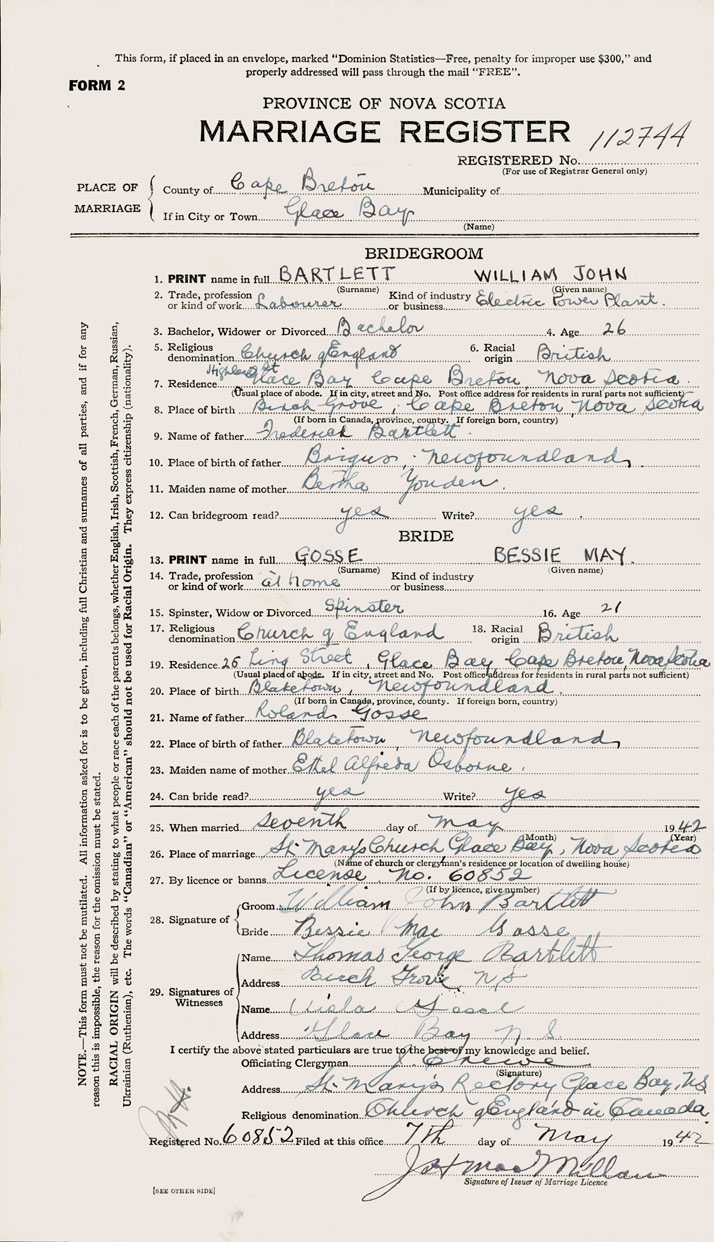 This form, if placed in an envelope, marked "Dominion Statistics—Free, penalty for improper use $300," and
properly addressed will pass through the mail "FREE".
FORM 2
PROVINCE OF NOVA SCOTIA
MARRIAGE REGISTER 112744
REGISTERED No.
(For use of Registrar General only)
PLACE OF MARRIAGE
County of Cape Breton Municipality of
If in City or Town Glace Bay
(Name)
BRIDEGROOM
1. PRINT name in full BARTLETT WILLIAM JOHN
(Surname) (Given name)
2. Trade, profession or kind of work Labourer Kind of industry or business Electric Power Plant.
3. Bachelor, Widower or Divorced Bachelor 4. Age 26
5. Religious denomination Church of England 6. Racial origin British
7. Residence Highland St Glace Bay Cape Breton, Nova Scotia.
(Usual place of abode. If in city, street and No. Post office address for residents in rural parts not sufficient)
8. Place of birth Birch Grove, Cape Breton Nova Scotia
(If born in Canada, province, county. If foreign born, country)
9. Name of father Frederick Bartlett.
10. Place of birth of father Brigus, Newfoundland,
11. Maiden name of mother Bertha Youden.
12. Can bridegroom read? yes Write? yes.
BRIDE
13. PRINT name in full GOSSE BESSIE MAY.
(Surname) (Given name)
14. Trade, profession or kind of work at home Kind of industry or business
15. Spinster, Widow or Divorced Spinster 16. Age 21
17. Religious denomination Church of England 18. Racial origin British
19. Residence 25 Ling Street, Glace Bay, Cape Breton, Nova Scotia
(Usual place of abode. If in city, street and No. Post office address for residents in rural parts not sufficient)
20. Place of birth Blaketown, Newfoundland.
(If born in Canada, province, county. If foreign born, country)
21. Name of father Roland Gosse
22. Place of birth of father Blaketown, Newfoundland,
23. Maiden name of mother Ethel Alfreda Osborne.
24. Can bride read? yes Write? yes
25. When married seventh day of May 1942
(Month) (Year)
26. Place of marriage St. Mary's Church Glace Bay, Nova Scotia
(Name of church or clergyman's residence or location of dwelling house)
27. By licence or banns License No. 60852
(If by licence, give number)
28. Signature of
Groom William John Bartlett
Bride Bessie Mae Gosse
29. Signatures of Witnesses
Name Thomas George Bartlett
Address Birch Grove, N.S
Name Viola
Address Glace Bay N.S.
I certify the above stated particulars are true to the best of my knowledge and belief.
Officiating Clergyman J.
(Signature)
Address St. Mary's Rectory Glace Bay, N.S
Religious denomination Church of England in Canada.
Registered No. 60852 Filed at this office 7th day of May 1942
J. H. MacMillan
Signature of Issuer of Marriage Licence
[SEE OTHER SIDE]
NOTE.—This form must not be mutilated. All information asked for is to be given, including full Christian and surnames of all parties, and if for any
reason this is impossible, the reason for the omission must be stated.
RACIAL ORIGIN will be described by stating to what people or race each of the parents belongs, whether English, Irish, Scottish, French, German, Russian,
Ukrainian (Ruthenian), etc. The words "Canadian" or "American" should not be used for Racial Origin. They express citizenship (nationality).